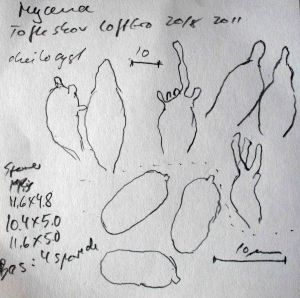 Mycena
Tofte skov Loftbro 20/8 2011
cheilocyst
10
Spores
11.6 x 4.8
10.4 x 5.0
11.6 x 5.0
Bas: 4 sporede
10 µm